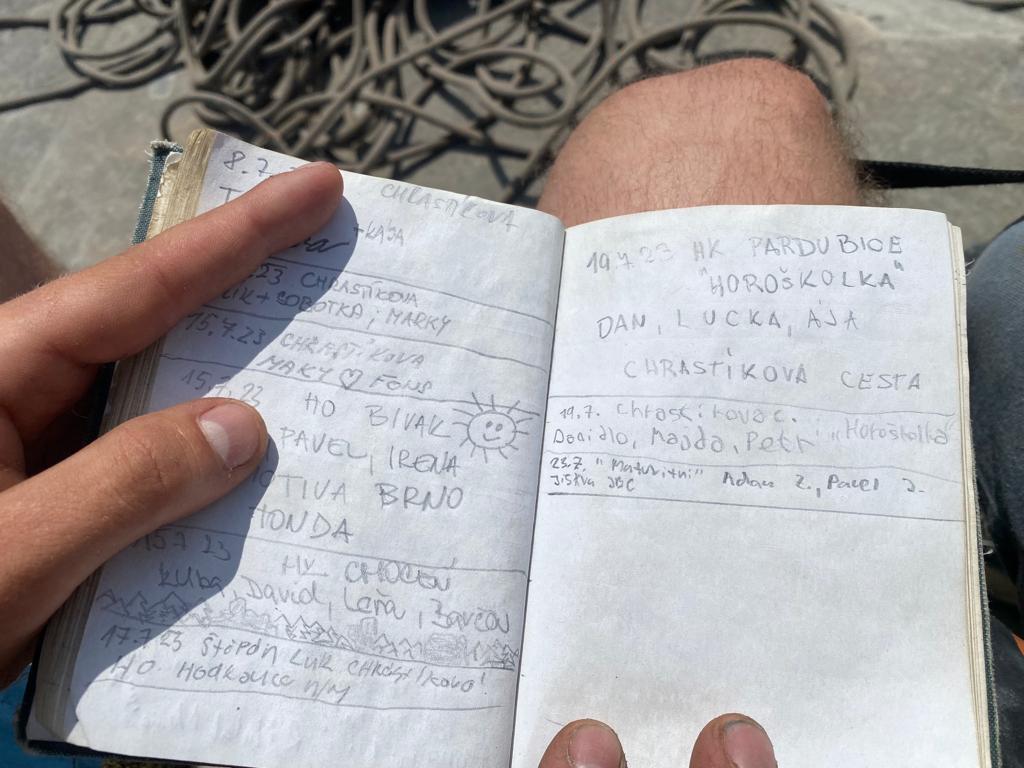 8.7. CHRASTÍKOVA
+KÁJA
23 CHRASTÍKOVA
+ SOBOTKA, MARKY
15.7.23 CHRASTÍKOVA
MAKY ♡ FONS
15.7.23 HO BIVAK
PAVEL, IRENA
OTIVA BRNO
HONDA
15.7 23 HK CHOCEŇ
Kuba, David, Leňa,
17.7 23 Štěpán Luk CHRASTÍKOVA!
HO HODKOVICE n/M
19.7.23 HK PARDUBICE
"HOROŠKOLKA"
DAN, LUCKA, ÁJA
CHRASTÍKOVA CESTA
19.7. Chrastíkova c.
Danidlo, Majda, Petr, "Horoškolka"
23.7. "Maturitní" Adam Z., Pavel J.
Jiskra JBC